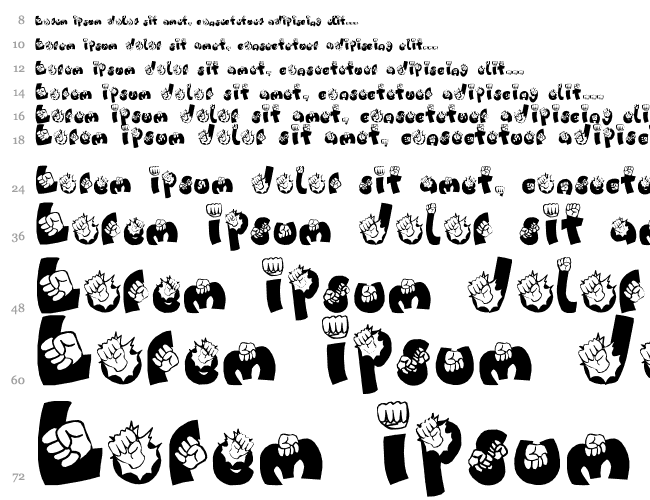 8 Lorem ipsum dolor sit amet, consectetuer adipiscing elit...
10 Lorem ipsum dolor sit amet, consectetuer adipiscing elit...
12 Lorem ipsum dolor sit amet, consectetuer adipiscing elit...
14 Lorem ipsum dolor sit amet, consectetuer adipiscing elit...
16 Lorem ipsum dolor sit amet, consectetuer adipiscing eli
18 Lorem ipsum dolor sit amet, consectetuer adipisc
24 Lorem ipsum dolor sit amet, consectetu
36 Lorem ipsum dolor sit am
48 Lorem ipsum dolor
60 Lorem ipsum do
72 Lorem ipsum